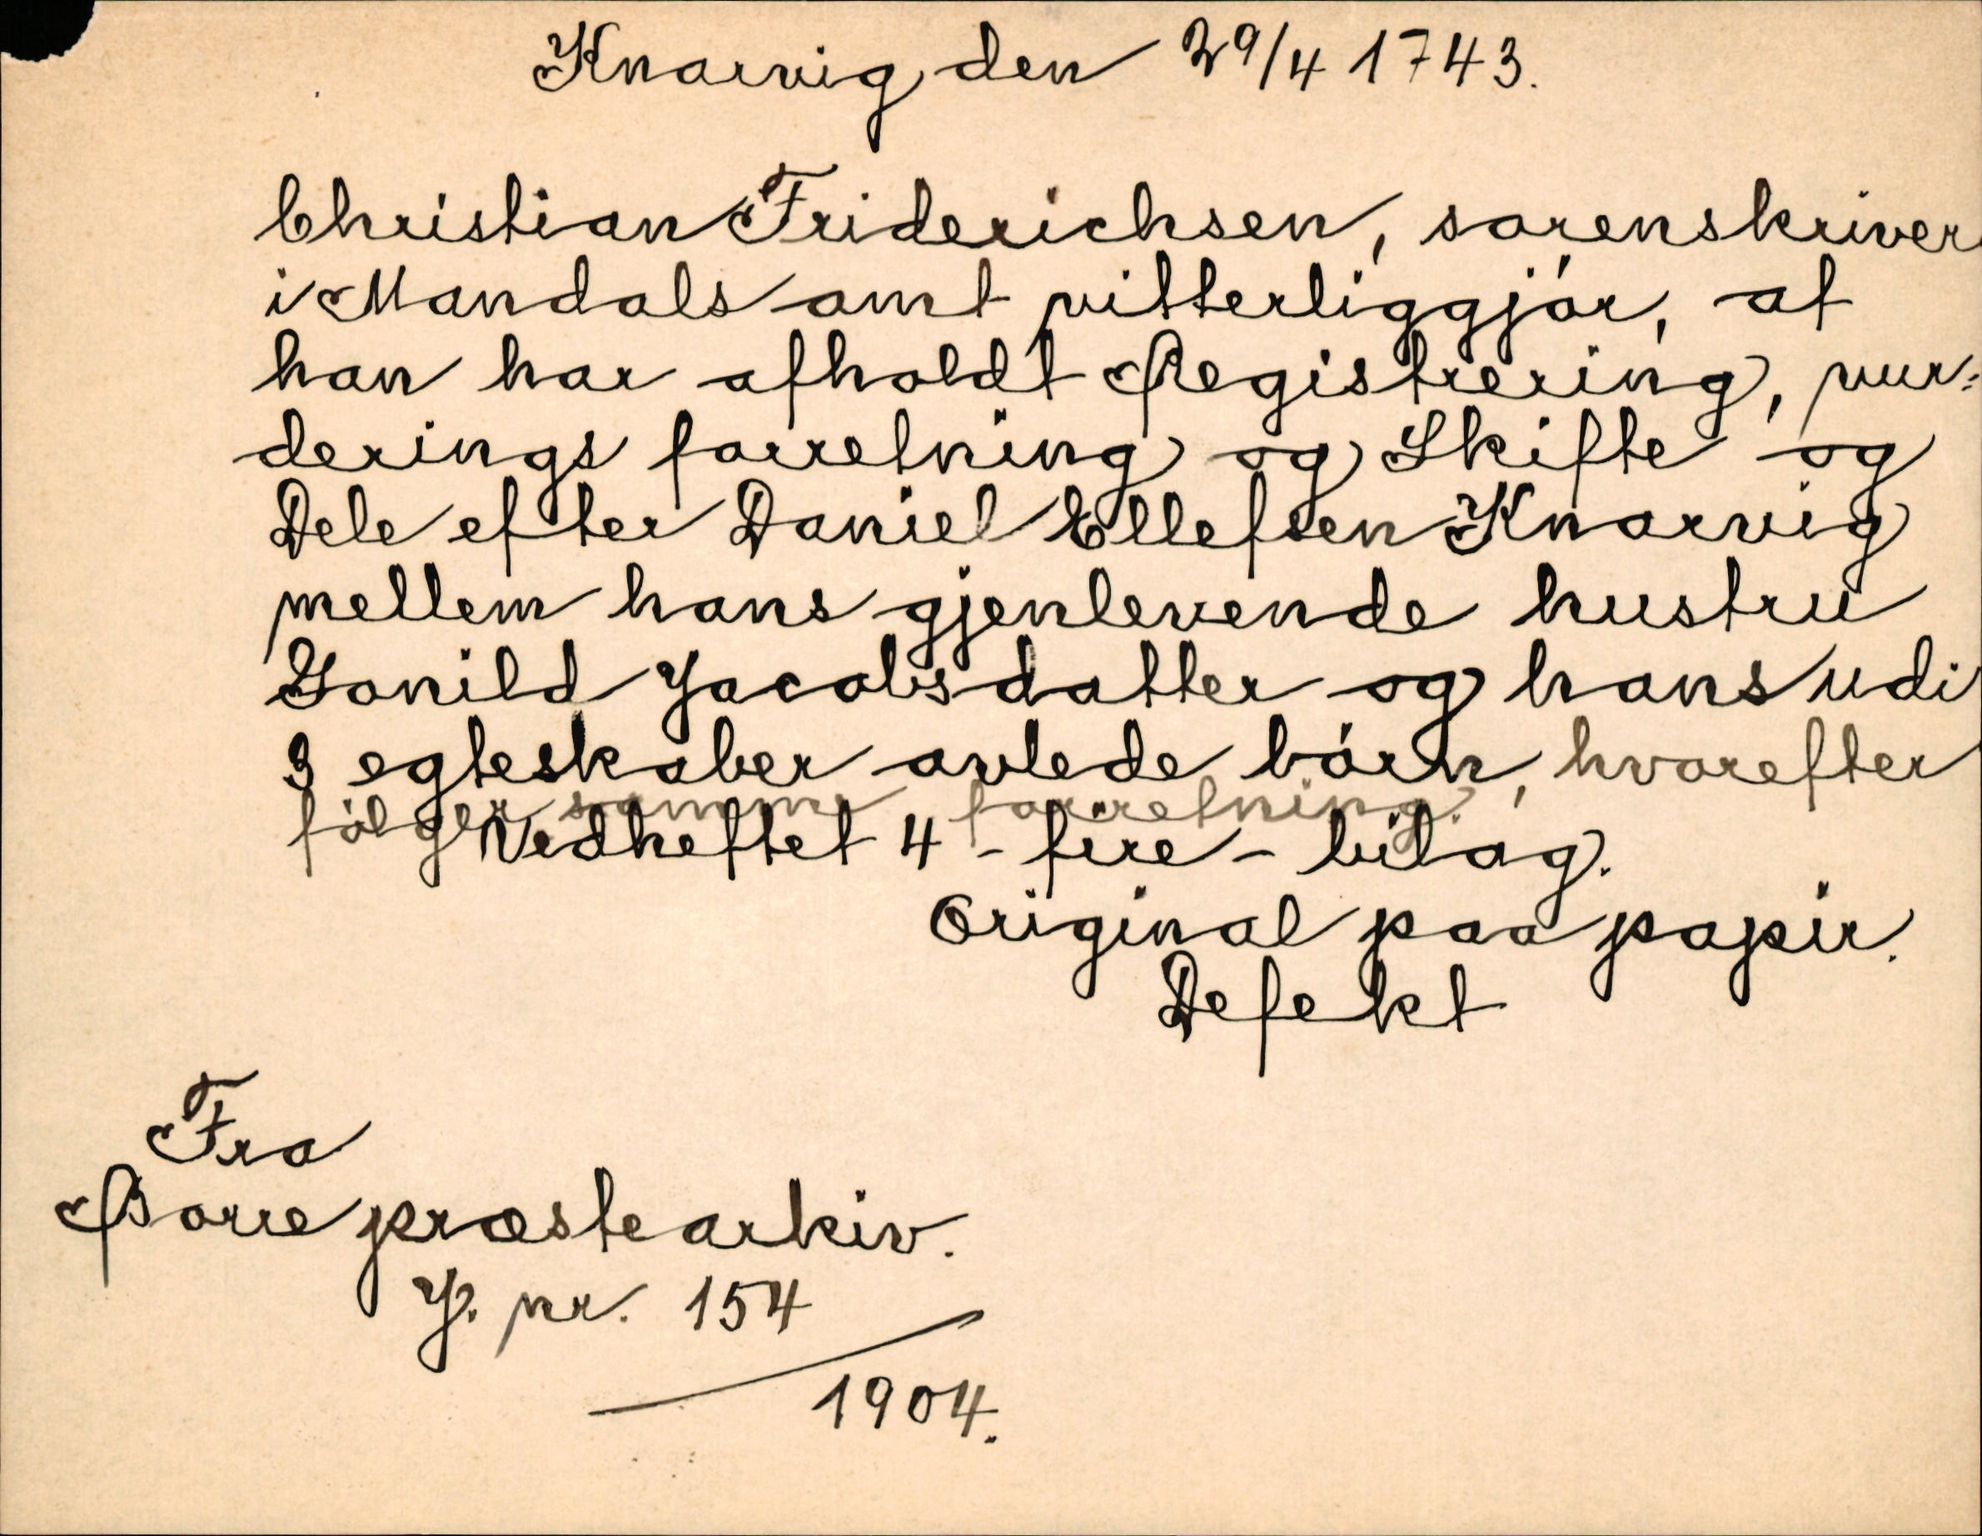 Knarvig den 29/4 1743.
Christian Friderichsen, sorenskriver
i Mandals amt vitterliggjör, at
han har afholdt Registrering, vur:
derings forretning og Skifte og
Dele efter Daniel Ellefsen Knarvig
mellem hans gjenlevende hustru
Gonild Jacobsdatter og hans udi
3 egteskaber avlede börn, hvorefter
fölger samme forretning.
Vedheftet 4 - fire - bilag.
Original paa papir.
Defekt
Fra
Borre præstearkiv.
J. nr. 154
1904.